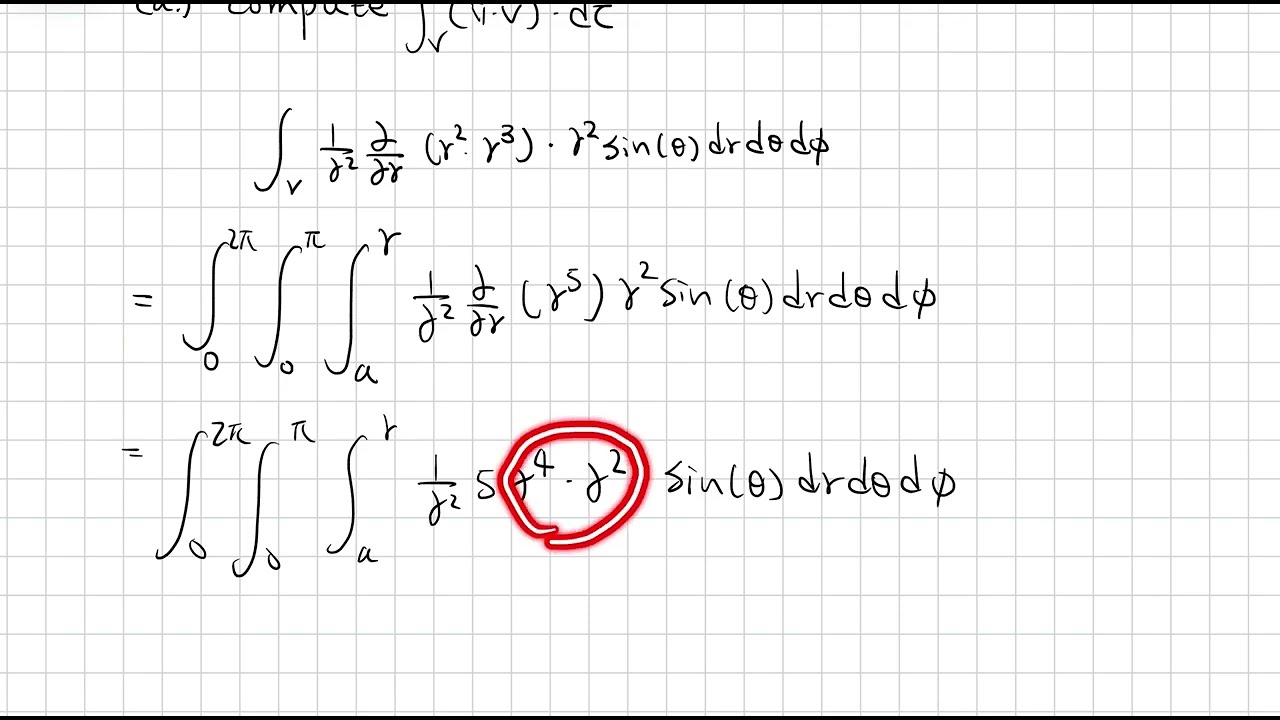 (a.) compute ∫_V (∇·V)·dτ
∫_V 1/r² ∂/∂r (r²·r³)·r² sin(θ) dr dθ dϕ
= ∫₀^{2π} ∫₀^π ∫ₐ^r 1/r² ∂/∂r (r⁵) r² sin(θ) dr dθ dϕ
= ∫₀^{2π} ∫₀^π ∫ₐ^r 1/r² 5 r⁴·r² sin(θ) dr dθ dϕ